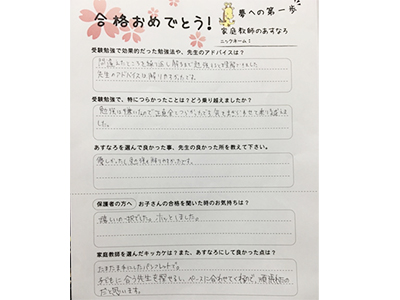 合格おめでとう!
夢への第一歩
家庭教師のあすなろ
ニックネーム:
受験勉強で効果的だった勉強法や、先生のアドバイスは?
間違えたところを繰り返し解き
先生のアドバイスは解りやすかったです。
受験勉強で、特につらかったことは?どう乗り越えましたか?
あすなろを選んで良かった事、先生の良かった所を教えて下さい。
優しかったし勉強も解りやすかったです。
保護者の方へ お子さんの合格を聞いた時のお気持ちは?
嬉しいの一択でした。ホッとしました。
家庭教師を選んだキッカケは?また、あすなろにして良かった点は?
たまたま手にしたパンフレットで。
子どもに合う先生を探せるし、ペースに合わせてく
だと思います。